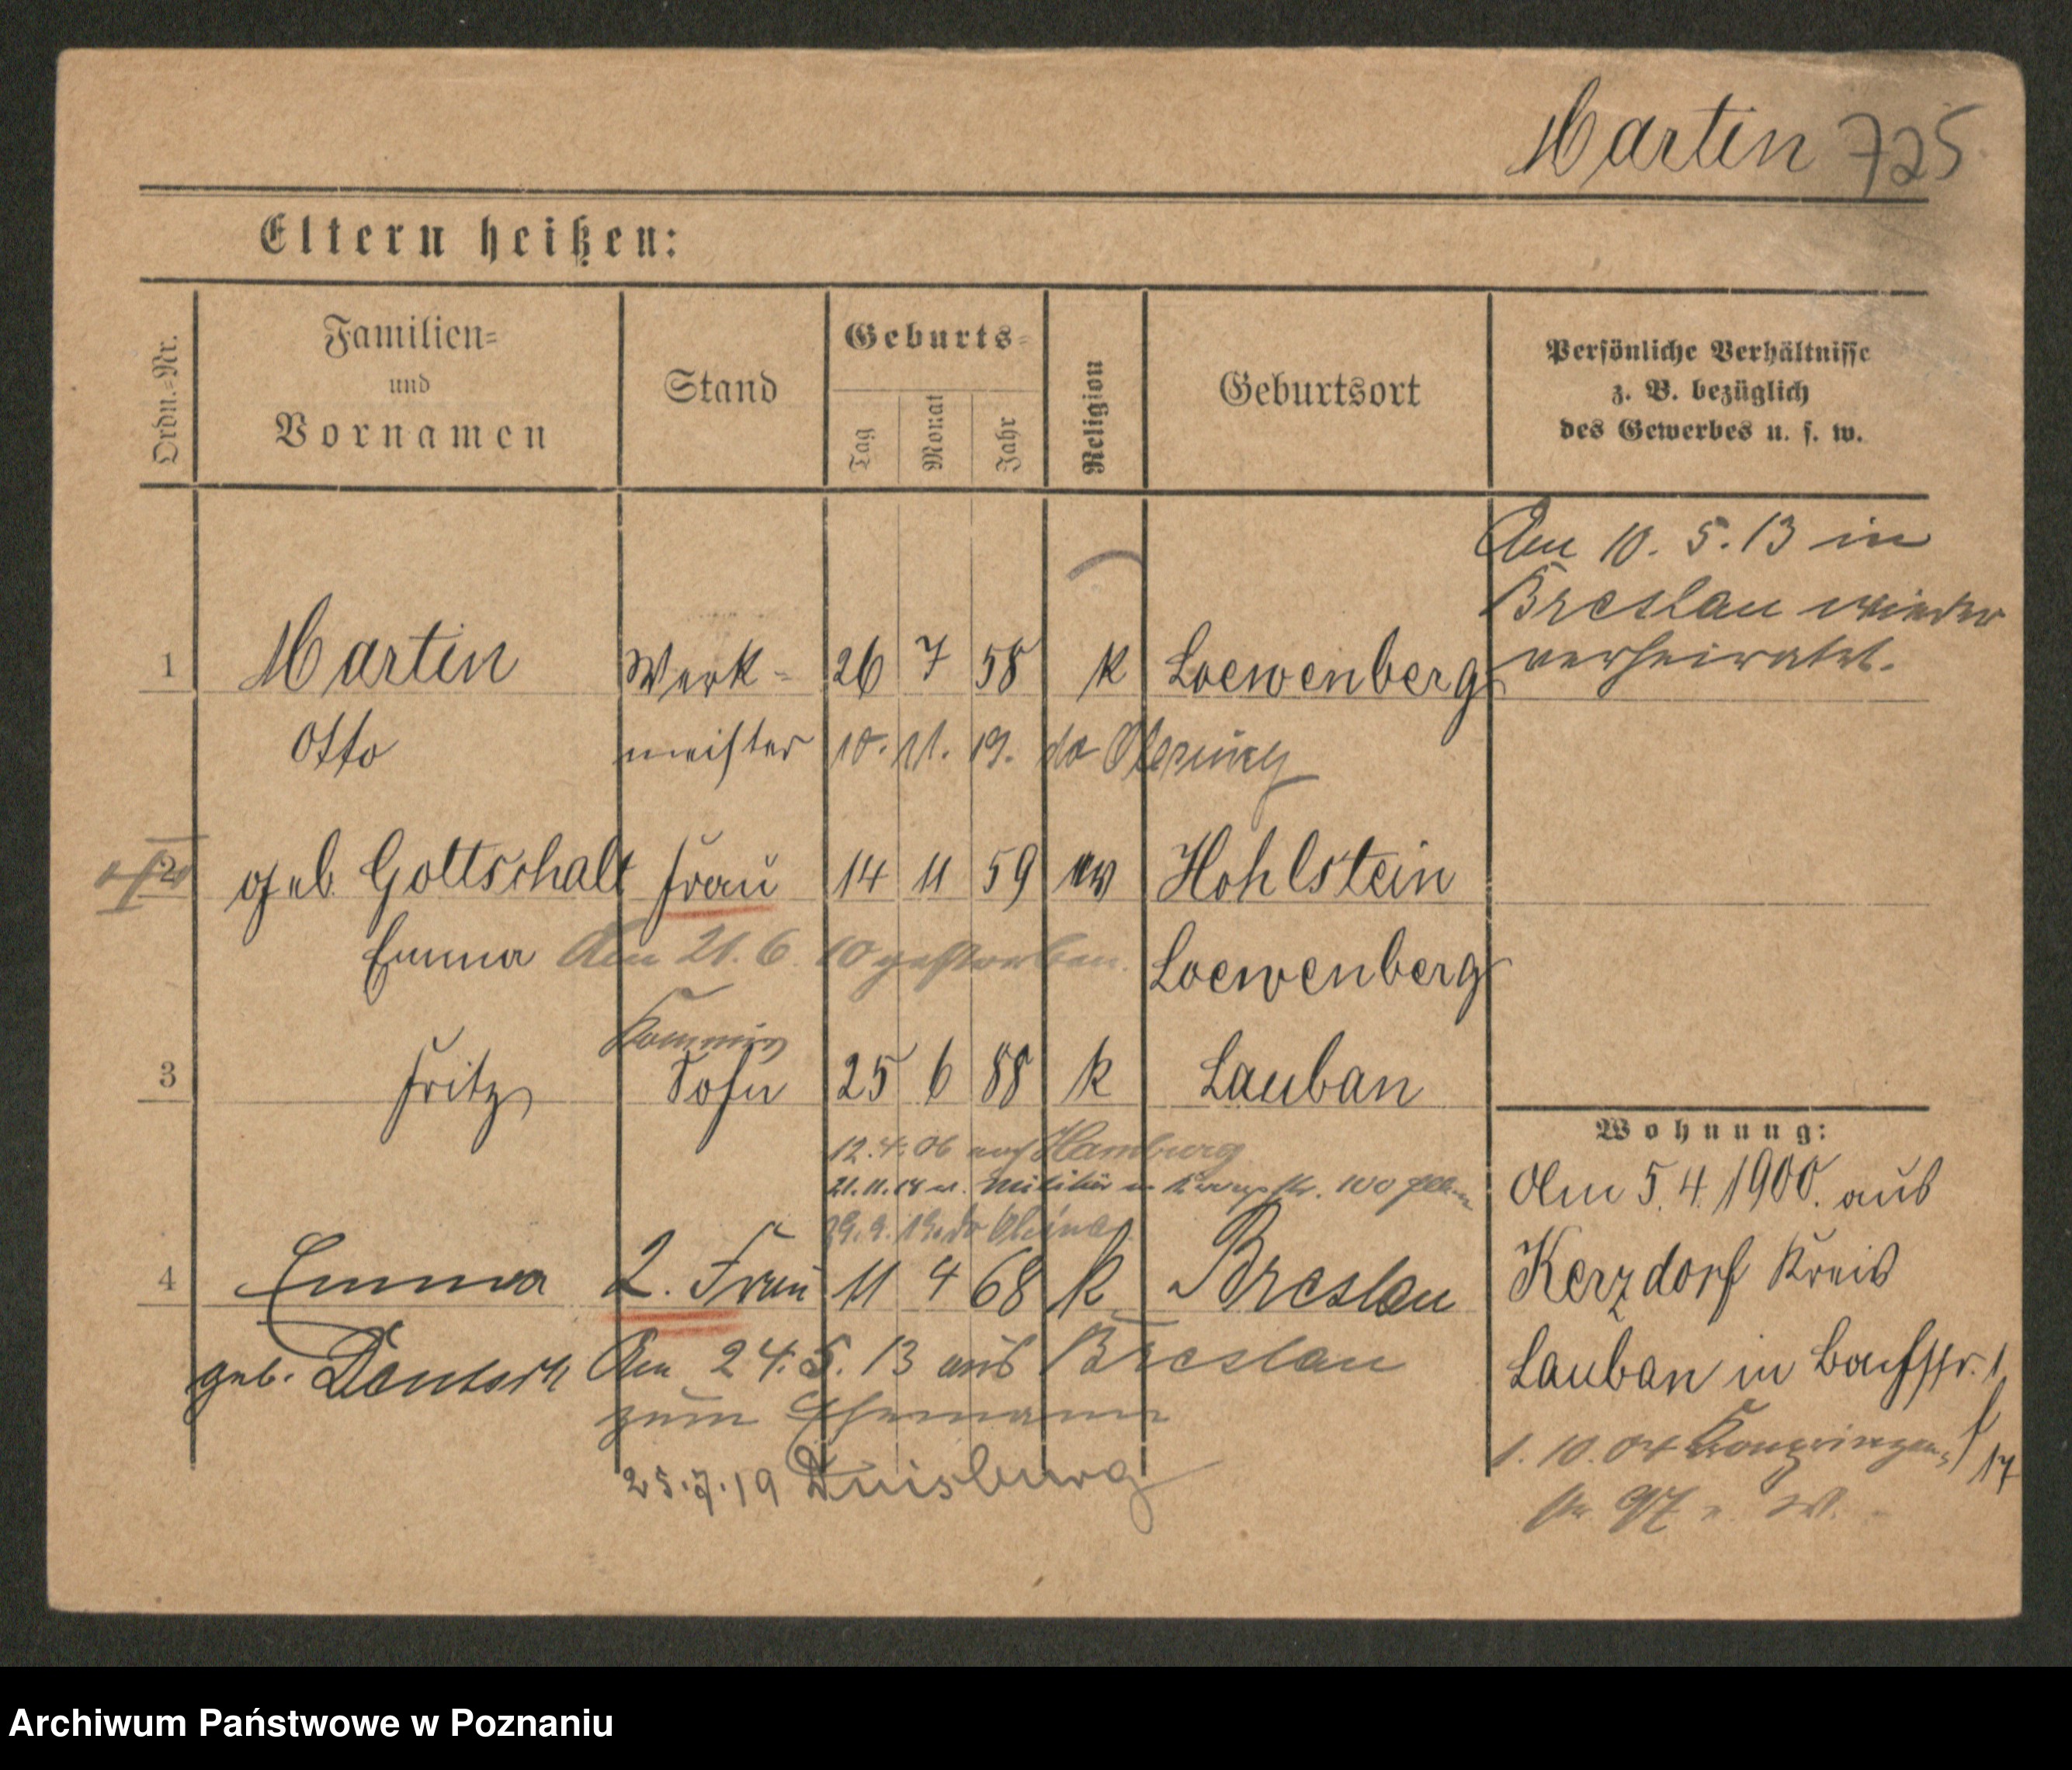 Martin 725
Eltern heißen:
Ordn.-Nr.
Familien-
und
Vornamen
Stand
Geburts-
Tag
Monat
Jahr
Religion
Geburtsort
Persönliche Verhältnisse
z. B. bezüglich
des Gewerbes u. s. w.
Am 10. 5. 13 in
Breslau wieder
verheiratet.
1 Martin Werk- 26 7 58 k Loewenberg
Otto meister 10. 11. 19.
2 geb. Gottschalk Frau 14 11 59 ev Hohlstein
Emma Am 21. 6. 10 gestorben. Loewenberg
3 Fritz Sohn 25 6 88 k Lauban
12. 4. 06 nach Hamburg
21. 11. 18 v. Militär
4 Emma 2. Frau 11 4 68 k Breslau
geb. Deutsch Am 24. 5. 13 aus Breslau
zum Ehemann
25. 7. 19 Duisburg
Wohnung:
Am 5. 4. 1900. aus
Kerzdorf Kreis
Lauban in
1. 10. 04 Kronprinzen-
97